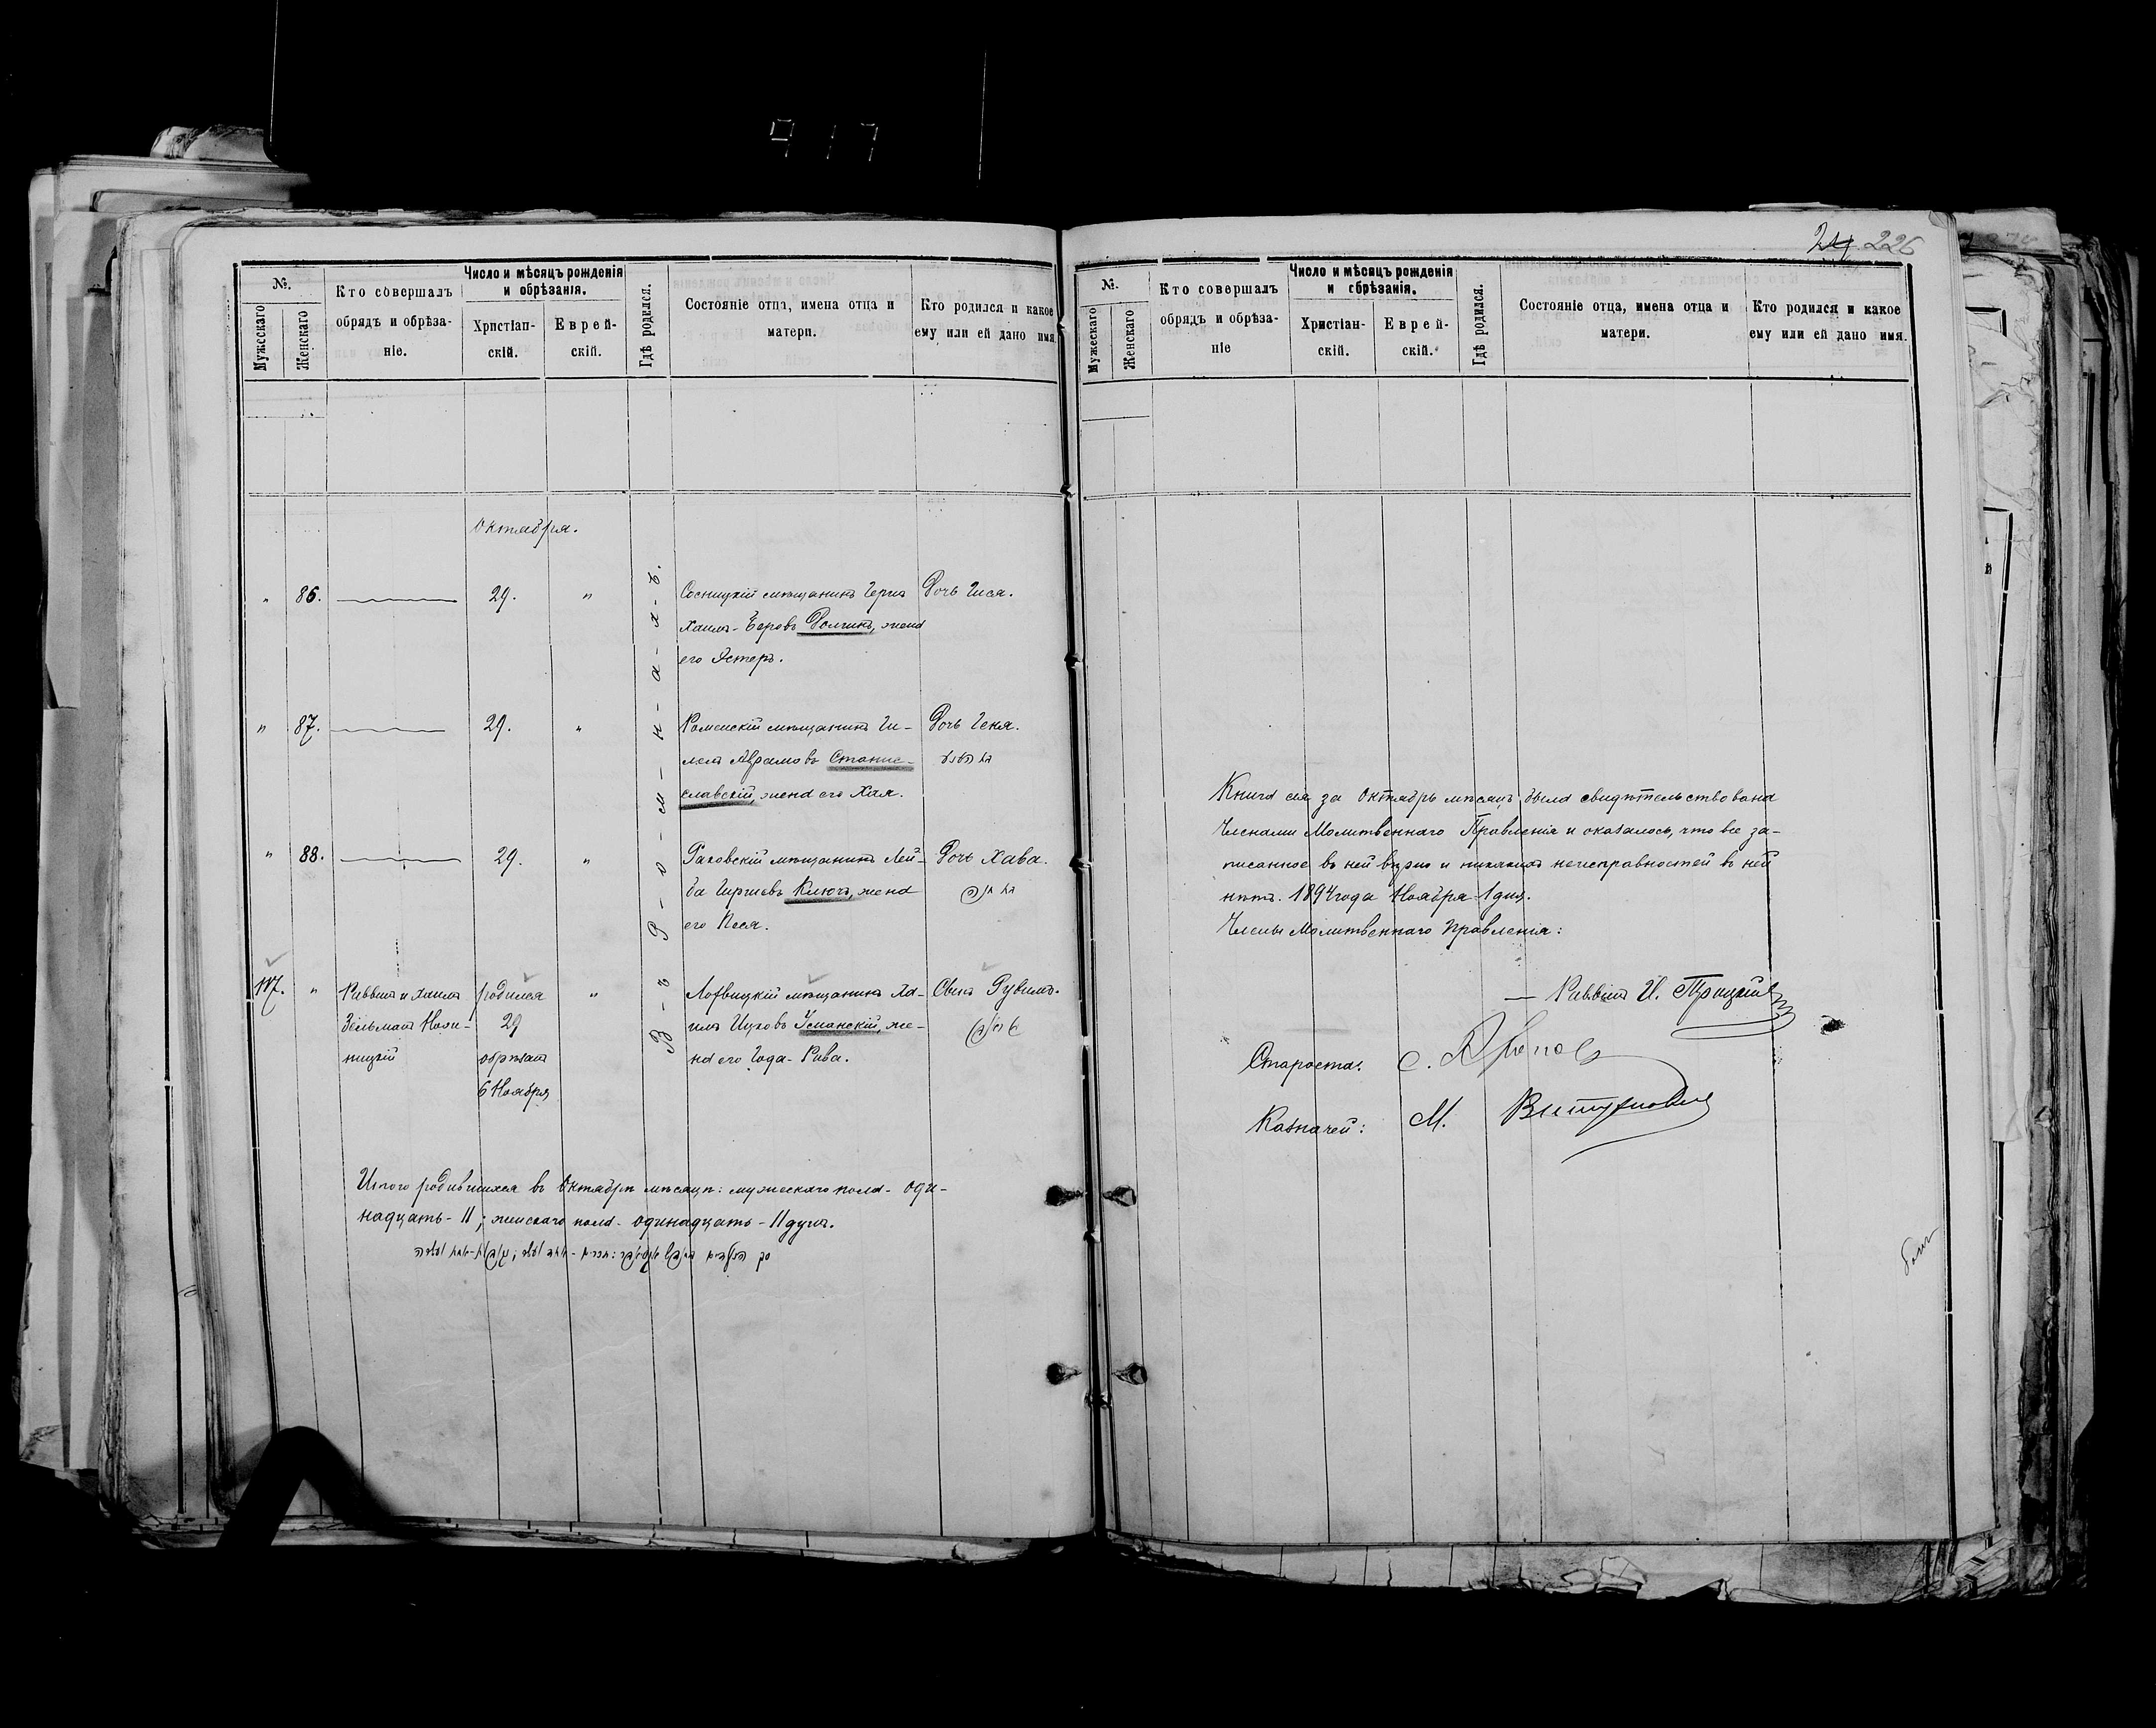 917
24 226
№.
Мужескаго
Женскаго
Кто совершалъ
обрядъ и обрѣза-
ніе.
Число и мѣсяцъ рожденія
и обрѣзанія.
Христіан-
скій.
Еврей-
скій.
Гдѣ родился.
Состояніе отца, имена отца и
матери.
Кто родился и какое
ему или ей дано имя.
Октября.
В-ъ Р-о-м-н-а-х-ъ.
" 86. 29. "
Сосницкій мѣщанинъ Герш
Хаимъ-Беровъ Долгинъ, жена
его Эстеръ.
Дочь Гися.
" 87. 29. "
Роменскій мѣщанинъ Ги-
лель Абрамовъ Станис-
славскій, жена его Хая.
Дочь Геня.
" 88. 29. "
Раковскій мѣщанинъ Лей-
ба Гиршевъ Ключъ, жена
его Песя.
Дочь Хава.
117. "
Раввинъ и Хаимъ
Зельманъ Нови-
ницкій
родился
29
обрѣзанъ
6 Ноября
"
Лохвицкій мѣщанинъ Ха-
имъ Ицковъ Усманскій, же-
на его Года-Рива.
Сынъ Рувимъ.
Итого родившихся въ Октябрѣ мѣсяцѣ: мужескаго пола- оди-
надцать- 11; женскаго пола- одинадцать- 11 душъ.
№.
Мужескаго
Женскаго
Кто совершалъ
обрядъ и обрѣза-
ніе
Число и мѣсяцъ рожденія
и обрѣзанія.
Христіан-
скій.
Еврей-
скій.
Гдѣ родился.
Состояніе отца, имена отца и
матери.
Кто родился и какое
ему или ей дано имя.
Книга сія за Октябрь мѣсяцъ была свидѣтельствована
Членами Молитвеннаго Правленія и оказалось, что все за-
писанное въ ней вѣрно и никакихъ неисправностей въ ней
нѣтъ. 1894 года Ноября 1 дня.
Члены Молитвеннаго Правленія:
Раввинъ И. Троцкій
Староста: С.
Казначей: М.